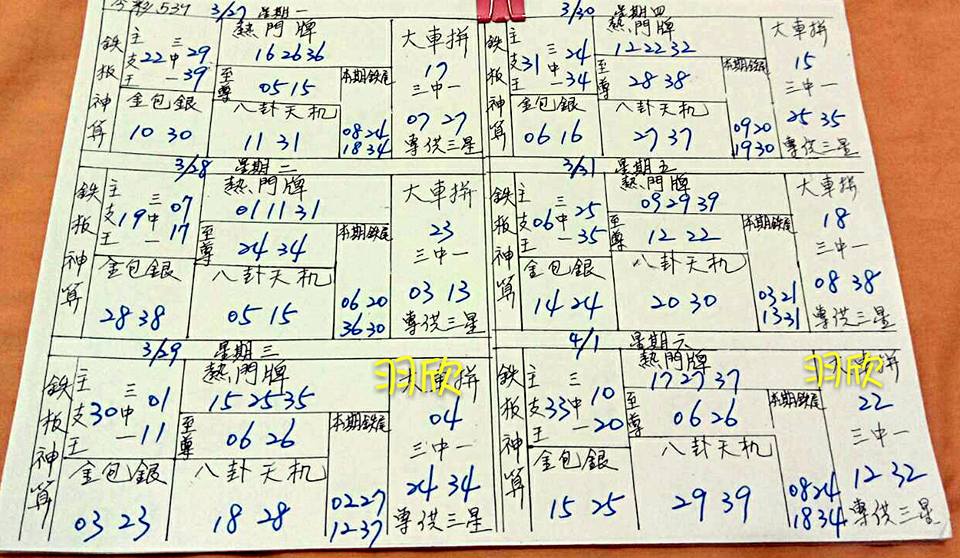 今彩539
3/27 星期一
鉄板神算
主支王 22 三中一 29 39
熱門牌
16 26 36
至尊 05 15
本期鉄尾
08 24
18 34
金包銀
10 30
八卦天机
11 31
大車拼
17
三中一
07 27
專供三星
3/30 星期四
鉄板神算
主支王 31 三中一 24 34
熱門牌
12 22 32
至尊 28 38
本期鉄尾
09 20
19 30
金包銀
06 16
八卦天机
27 37
大車拼
15
三中一
25 35
專供三星
3/28 星期二
鉄板神算
主支王 19 三中一 07 17
熱門牌
01 11 31
至尊 24 34
本期鉄尾
06 20
36 30
金包銀
28 38
八卦天机
05 15
大車拼
23
三中一
03 13
專供三星
3/31 星期五
鉄板神算
主支王 06 三中一 25 35
熱門牌
09 29 39
至尊 12 22
本期鉄尾
03 21
13 31
金包銀
14 24
八卦天机
20 30
大車拼
18
三中一
08 38
專供三星
3/29 星期三
鉄板神算
主支王 30 三中一 01 11
熱門牌
15 25 35
至尊 06 26
本期鉄尾
02 27
12 37
金包銀
03 23
八卦天机
18 28
大車拼
羽欣
04
三中一
24 34
專供三星
4/1 星期六
鉄板神算
主支王 33 三中一 10 20
熱門牌
17 27 37
至尊 06 26
本期鉄尾
08 24
18 34
金包銀
15 25
八卦天机
29 39
大車拼
羽欣
22
三中一
12 32
專供三星